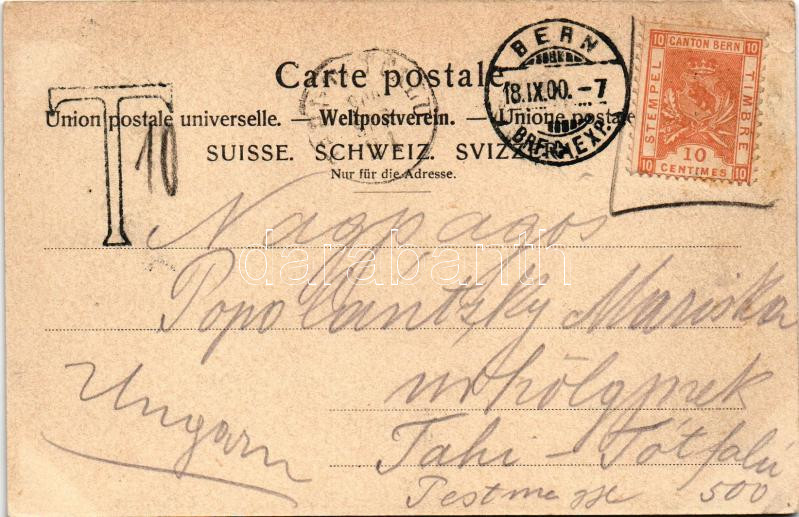 Carte postale
Union postale universelle. — Weltpostverein. — Unione postale
SUISSE. SCHWEIZ. SVIZZ
Nur für die Adresse.
T 10
BERN
18.IX.00.-7
BRF.EXP.
10 CANTON BERN 10
STEMPEL
TIMBRE
10
10 CENTIMES 10
Nagysagos
Mariska
úrhölgynek
Ungarn
Tahi - Tótfalú
Pestmegye 500
darabanth